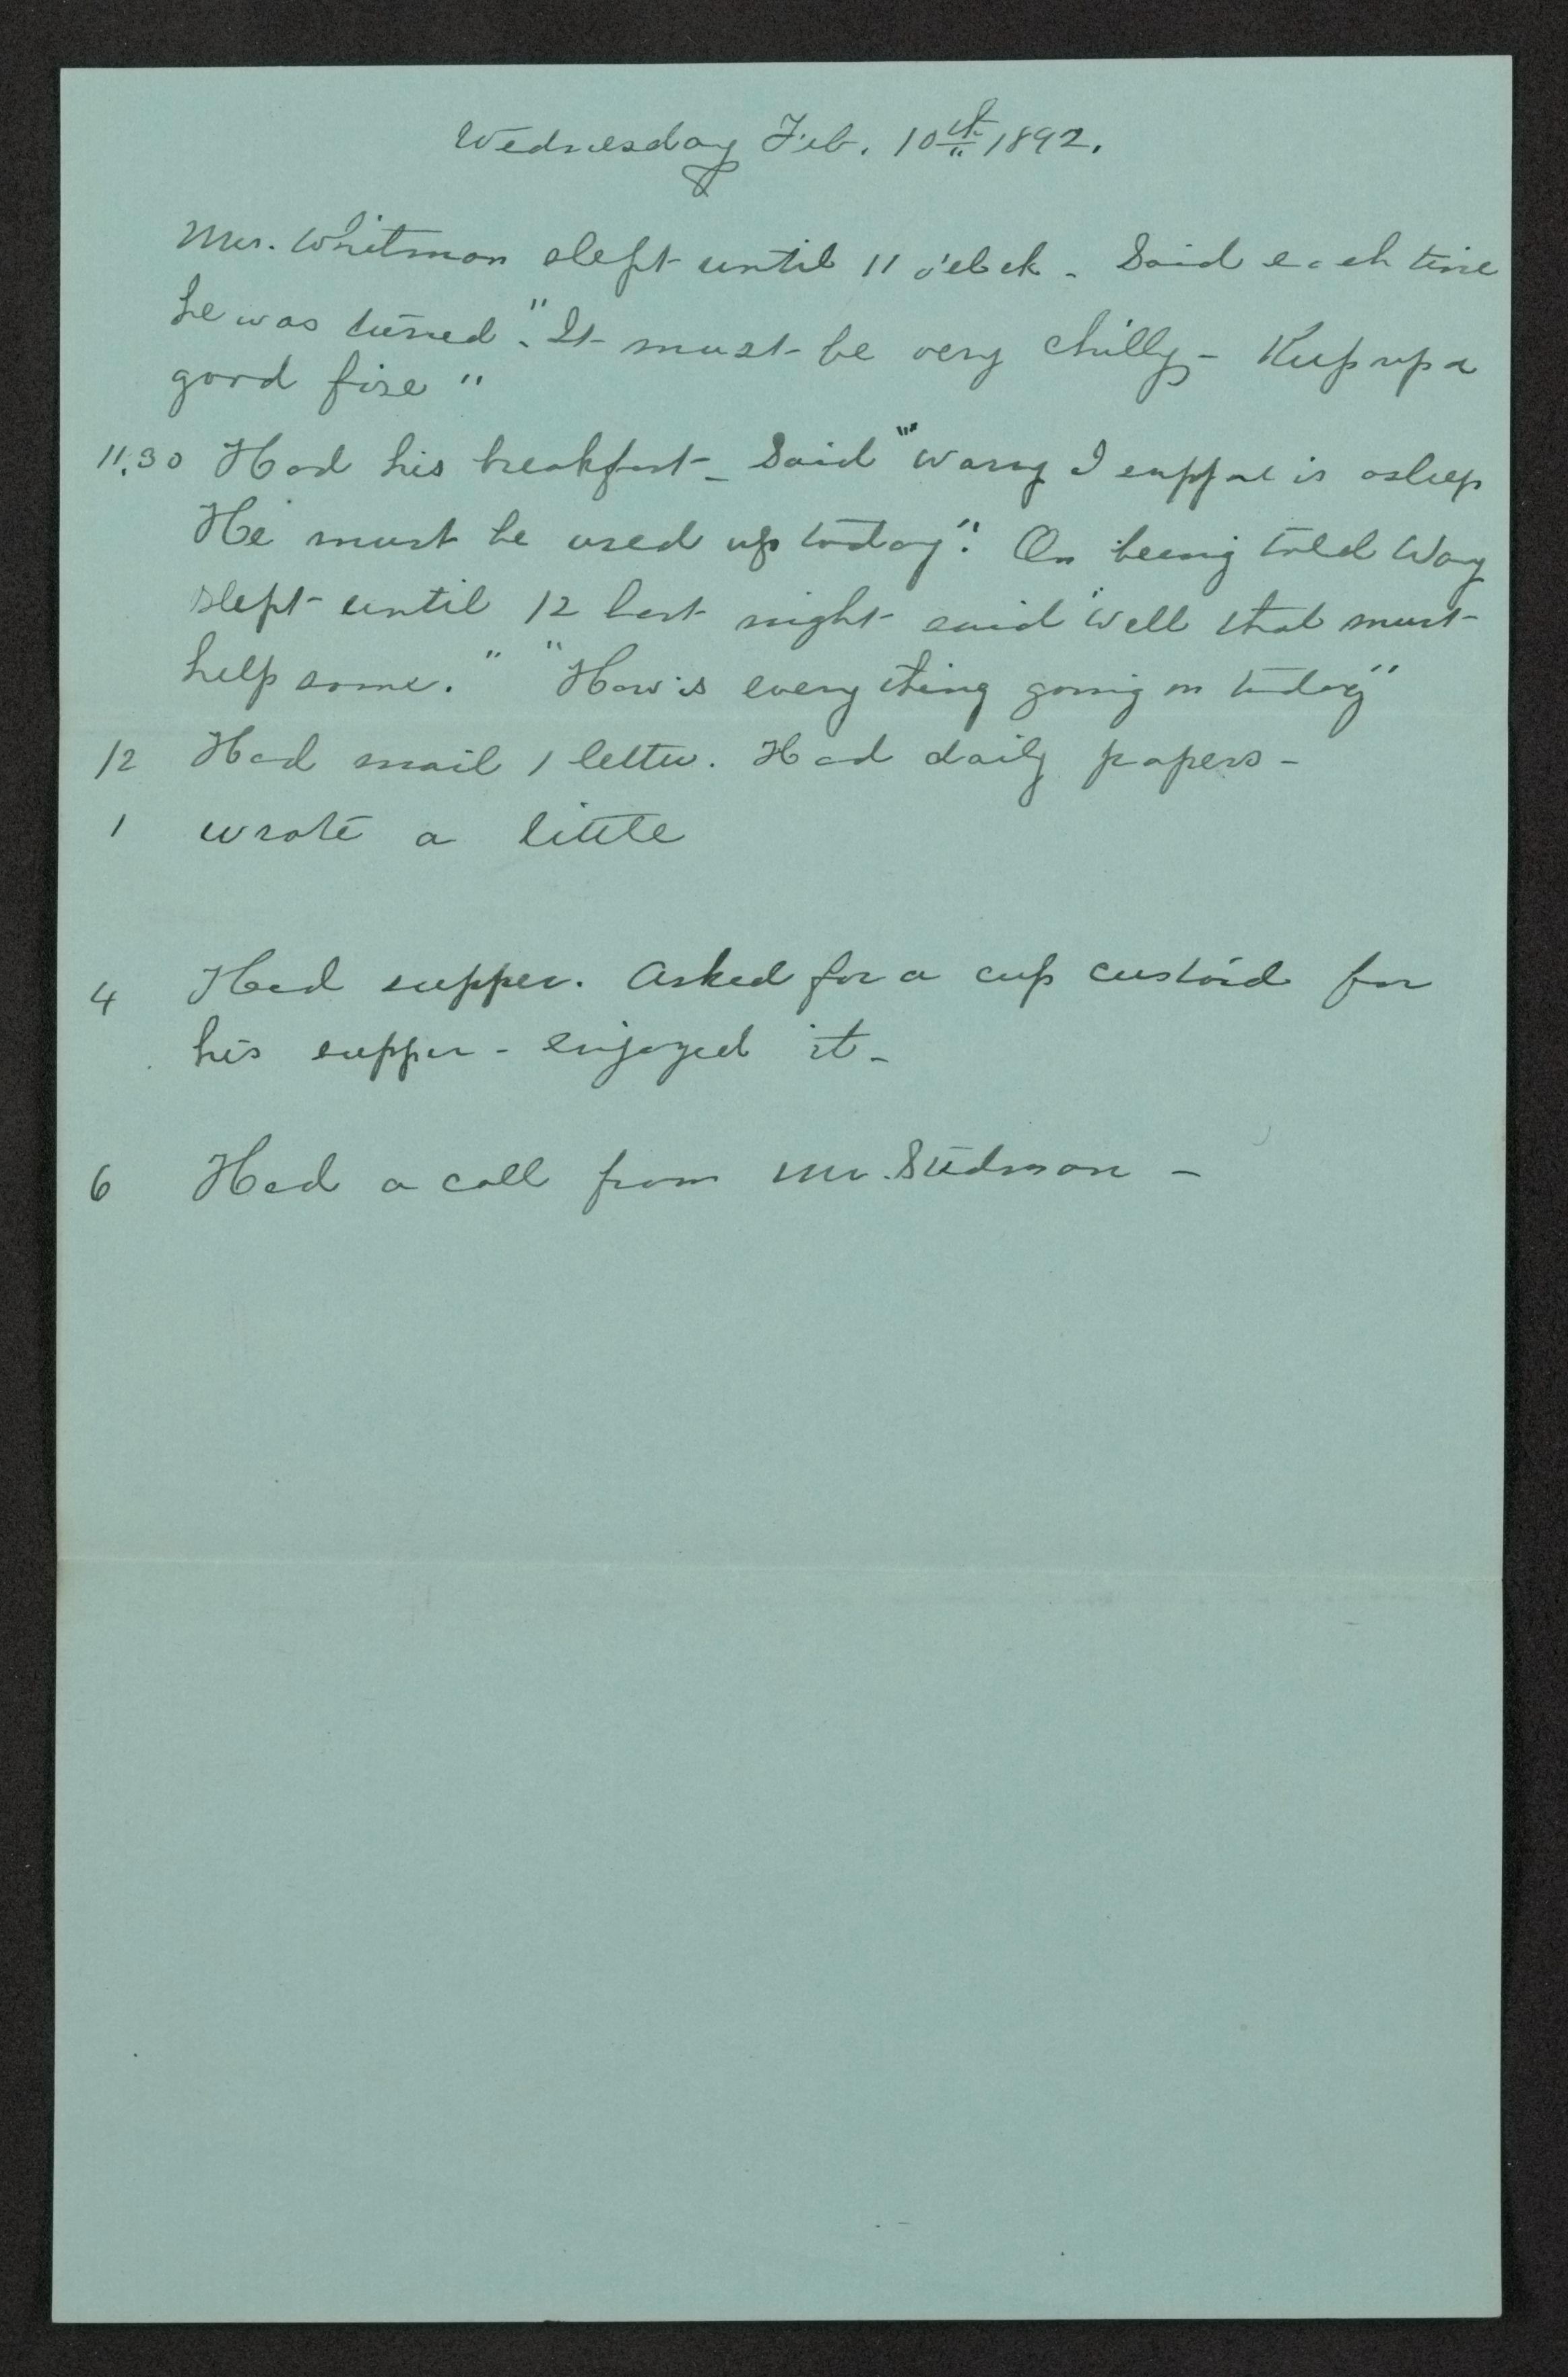 Wednesday Feb. 10th 1892.
Mr. Whitman slept until 11 o'clck - Said each time
he was turned. "It must be very chilly - Keep up a
good fire"
11.30 Had his breakfast - Said "Warry I suppose is asleep
He must be used up today". On being told Warry
slept until 12 last night said "well that must
help some." "How is every thing going on today"
12 Had mail 1 letter. Had daily papers -
1 wrote a little
4 Had supper. Asked for a cup custard for
his supper - enjoyed it -
6 Had a call from Mr. Stedman -